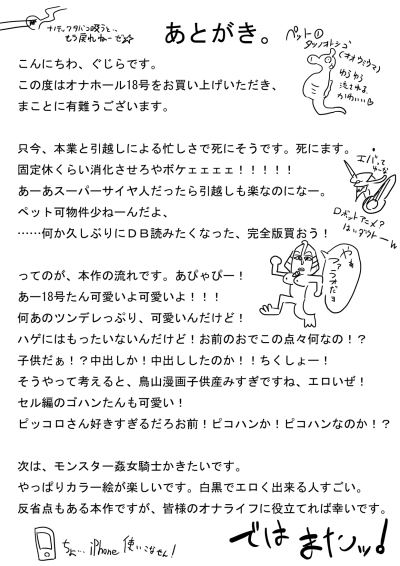 ナチュラルタバコ吸うと…
もう戻れねーぜ☆
あとがき。
ペット①
タツノオトシゴ
(オオウミウマ)
ゆらゆら
流されま
かわいい
こんにちわ、ぐじらです。
この度はオナホール18号をお買い上げいただき、
まことに有難うございます。
只今、本業と引越しによる忙しさで死にそうです。死にます。
固定休くらい消化させろやボケェェェェ!!!!!
あーあスーパーサイヤ人だったら引越しも楽なのになー。
ペット可物件少ねーんだよ、
……何か久しぶりにDB読みたくなった、完全版買おう!
エバって
ロボットアニメ?
はいダウトーーw
ってのが、本作の流れです。あぴゃぴー!
あー18号たん可愛いよ可愛いよ!!!
何あのツンデレっぷり、可愛いんだけど!
ハゲにはもったいないんだけど!お前のおでこの点々何なの!?
子供だぁ!?中出しか!中出ししたのか!!ちくしょー!
そうやって考えると、鳥山漫画子供産みすぎですね、エロいぜ!
セル編のゴハンたんも可愛い!
ピッコロさん好きすぎるだろお前!ピコハンか!ピコハンなのか!?
次は、モンスター姦女騎士かきたいです。
やっぱりカラー絵が楽しいです。白黒でエロく出来る人すごい。
反省点もある本作ですが、皆様のオナライフに役立てれば幸いです。
ちょ…iPhone 使いこなせん!
では またンッ!